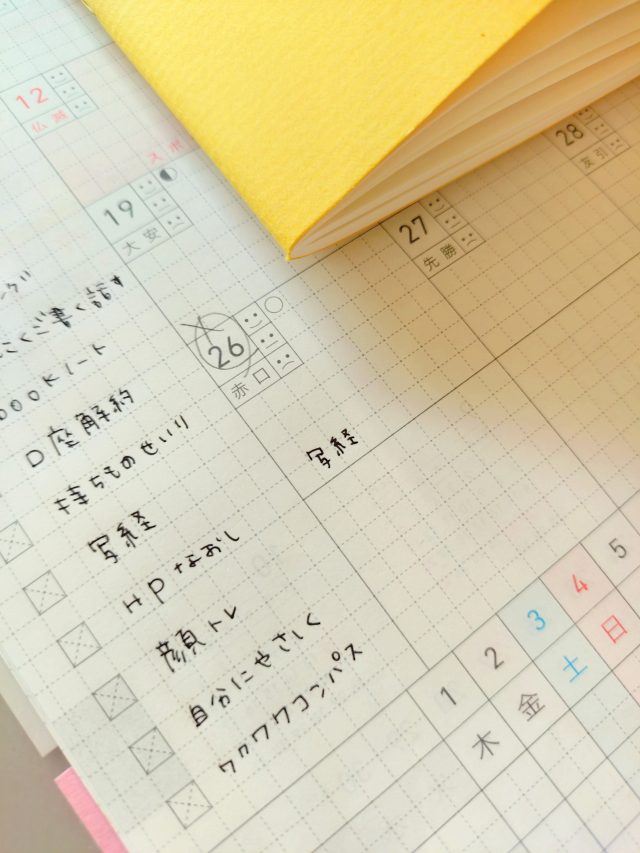 12
仏滅
スポ
19
大安
26
赤口
27
先勝
28
友引
ング
書く話す
000Kノート
口座解約
持ちものせいり
写経
HPなおし
顔トレ
自分にやさしく
ワクワクコンパス
写経
1 2 3 4 5
木 金 土 日